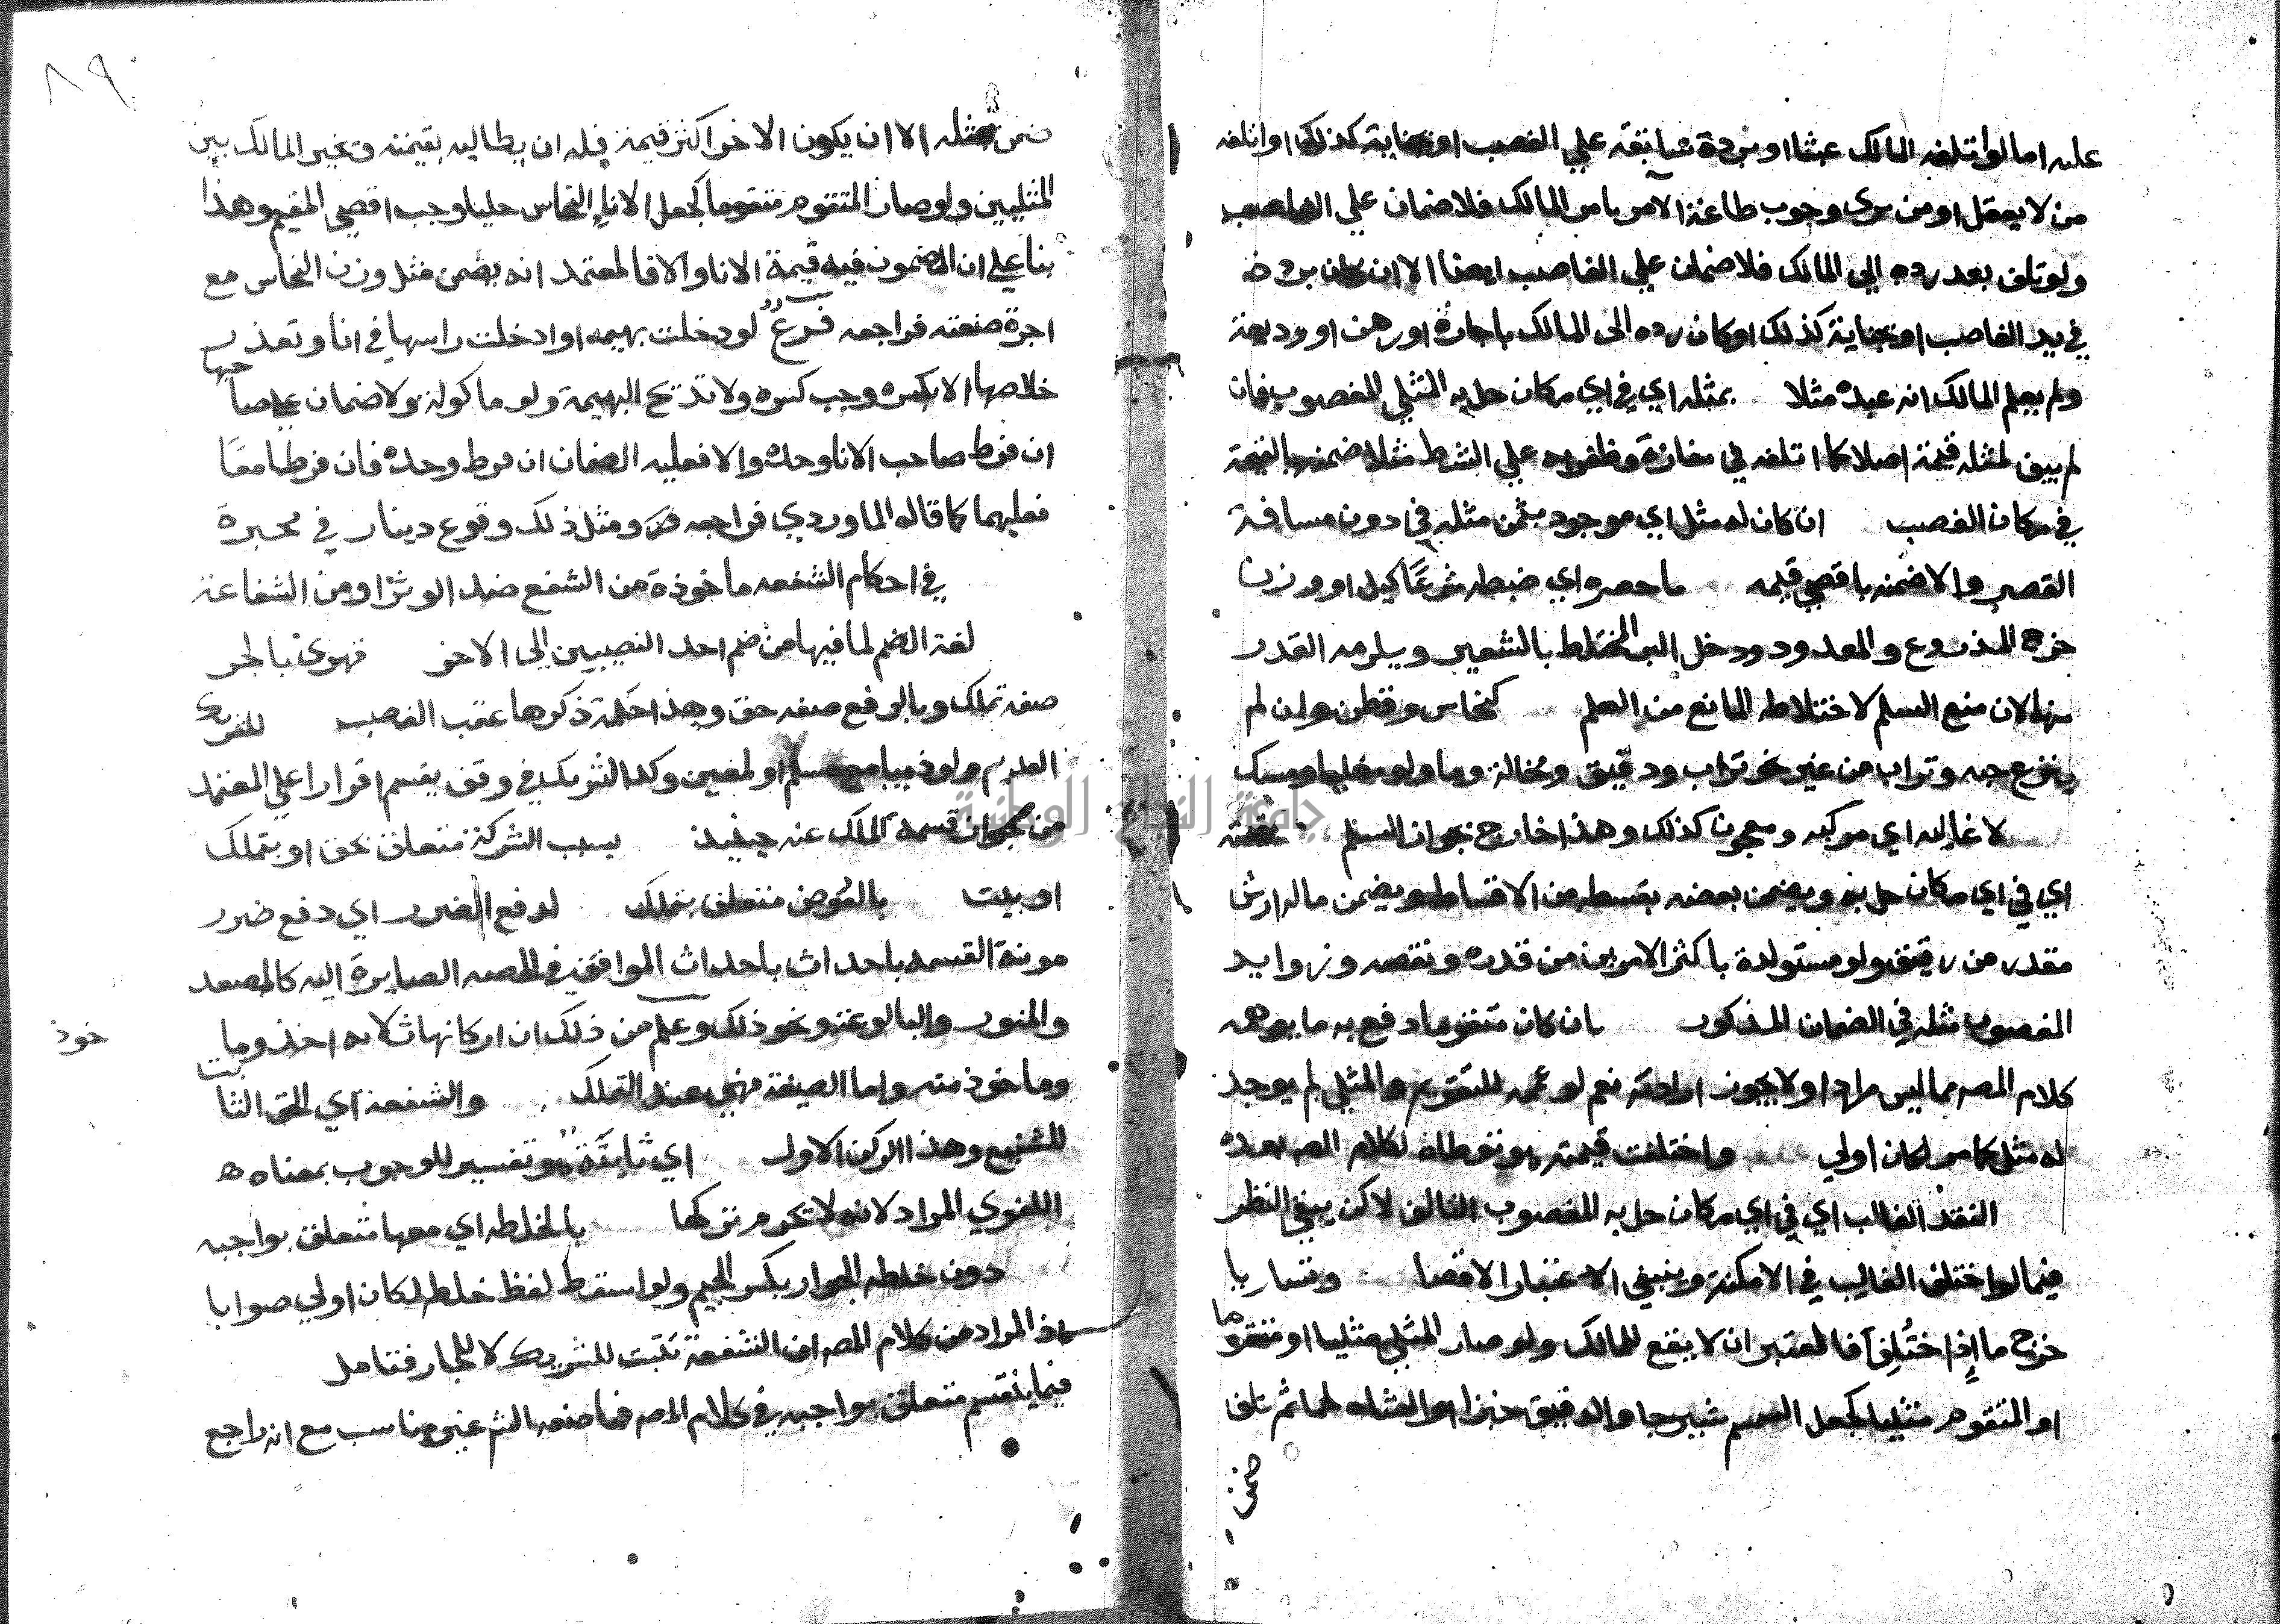 عليه اما لو اتلفه المالك عبثا او بردة سابقة علي الغصب او بجناية كذلك او اتلفه
من لا يعقل او من يرى وجوب طاعة الآمر بامر المالك فلا ضمان علي الغاصب
ولو تلف بعد رده الي المالك فلا ضمان علي الغاصب ايضا الا ان كان بردة
في يد الغاصب او بجناية كذلك او كان رده الى المالك باجارة او رهن او وديعة
ولم يعلم المالك انه عبده مثلا بمثله اي في اي مكان حل به المثلي المغصوب فان
لم يبق لمثله قيمة اصلا كما اتلفه في مفازة وظفر به علي الشط مثلا ضمنه بالقيمة
في مكان الغصب ان كان له مثل اي موجود بثمن مثله في دون مسافة
القصر والا ضمنه باقصي قيمه ما حصره اي ضبطه شرعًا كيل او وزن
خرج المذروع والمعدود ودخل البر المختلط بالشعير ويلزمه القدر
منهما لان منع السلم لاختلاطه المانع من العلم كنحاس وقطن وان لم
ينزع حبه وتراب من غير نحو تراب ودقيق ونخالة وما ولو مغليا ومسك
لا غالية اي مركبه ومعجون كذلك وهذا خارج بجواز السلم
اي في اي مكان حل به ويضمن بعضه بقسطه من الاقساط ويضمن ماله ارش
مقدر من رقيق ولو مستولدة باكثر الامرين من قدره ونقصه وزوايد
المغصوب مثله في الضمان المذكور بان كان متقوما دفع به ما يوهمه
كلام المصه مما ليس مرادا ولا يجوز ارادته نعم لو عمم للمتقوم والمثلي لم يوجد
له مثل كما مر لكان اولي واختلفت قيمته هو توطاة لكلام المصه بعده
النقد الغالب اي في اي مكان حل به المغصوب التالف لاكن يبقي النظر
فيما لو اختلف الغالب في الامكنة وينبغي الاعتبار الاقصا وتساريا
خرج ما إذا اختلفا فالمعتبر ان لا يقع للمالك ولو صار المثلي مثليا او متقوما
او المتقوم مثليا كجعل السمسم شيرجا والدقيق خبزا والشاه لحما ثم تلف
ضمن
٨٩
ضمن مثله الا ان يكون الاخر اكثر قيمة فله ان يطالبه بقيمته وتخير المالك بين
المثليين ولو صار المتقوم متقوما كجعل الاناء النحاس حليا وجب اقصي القيم وهذا
بنا علي ان المضمون فيه قيمة الانا والا فالمعتمد انه يضمن مثل وزن النحاس مع
اجرة صنعته فراجعه فرع لو دخلت بهيمه او ادخلت راسها في انا وتعذر
خلاصها الا بكسره وجب كسره ولا تذبح البهيمة ولو ماكولة ولا ضمان علي صاحبها
ان فرط صاحب الانا وحده والا فعليه الضمان ان فرط وحده فان فرطا معًا
فعليهما كما قاله الماوردي فراجعه ومثل ذلك وقوع دينار في محبرة
في احكام الشفعه ماخوذة من الشفع ضد الوتر او من الشفاعة
لغة الضم لما فيها من ضم احد النصيبين الى الاخر قهري بالجر
صفة تملك وبالرفع صفه حق وهذا حكمة ذكرها عقب الغصب للشريك
القديم ولو ذميا مع مسلم او لمعين وكذا الشريك في وقف يقسم افرارا علي المعتمد
من جواز قسمة الملك عنه حينيذ بسبب الشركة متعلق بحق او بتملك
او بيثبت بالعوض متعلق بتملك لدفع الضرر اي دفع ضرر
مونة القسمه باحداث باحداث الموافق في الحصه الصايرة اليه كالمصعد
والمنور والبالوعة ونحو ذلك وعلم من ذلك ان اركانها ثلاثه اخذ وما
خوذ
وماخوذ منه واما الصيغة فهي عند التملك والشفعة اي الحق الثابت
للشفيع وهذا الركن الاول اي ثابتة هو تفسير للوجوب بمعناه
اللغوي المراد لانه لا تحرم تركها بالخلطه اي معها متعلق بواجبه
دون خلطه الجوار بكسر الجيم ولو اسقط لفظ خلطه لكان اولي صوابا
اذ المراد من كلام المصه ان الشفعة تثبت للشريك لا للجار فتامل
فيما ينقسم متعلق بواجبه في كلام المصه فما صنعه الش غير مناسب مع انه راجع
جامعة النجاح الوطنية